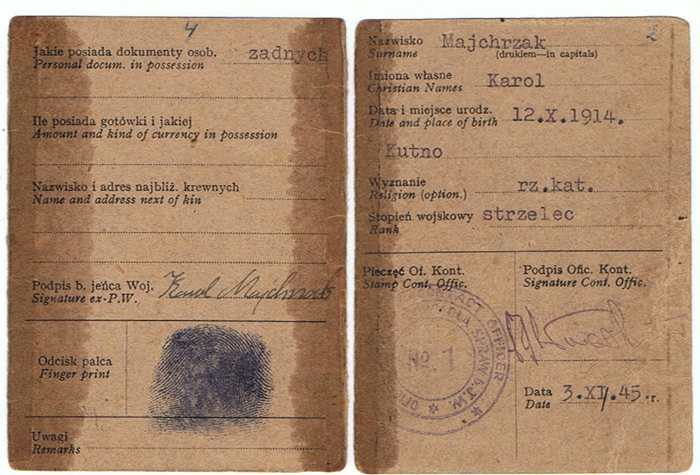 4
Jakie posiada dokumenty osob. zadnych
Personal docum. in possession
Ile posiada gotówki i jakiej
Amount and kind of currency in possession
Nazwisko i adres najbliż. krewnych
Name and address next of kin
Podpis b. jeńca Woj. Karol Majchrzak
Signature ex-P.W.
Odcisk palca
Finger print
Uwagi
Remarks
2
Nazwisko Majchrzak
Surname (drukiem—in capitals)
Imiona własne Karol
Christian Names
Data i miejsce urodz. 12.X.1914.
Date and place of birth
Kutno
Wyznanie rz.kat.
Religion (option.)
Stopień wojskowy strzelec
Rank
Pieczęć Of. Kont.
Stamp Cont. Offic.
Podpis Ofic. Kont.
Signature Cont. Offic.
OFFICER
DLA SPRAW b. J.W.
No. 1
Data 3.XI.45.r.
Date